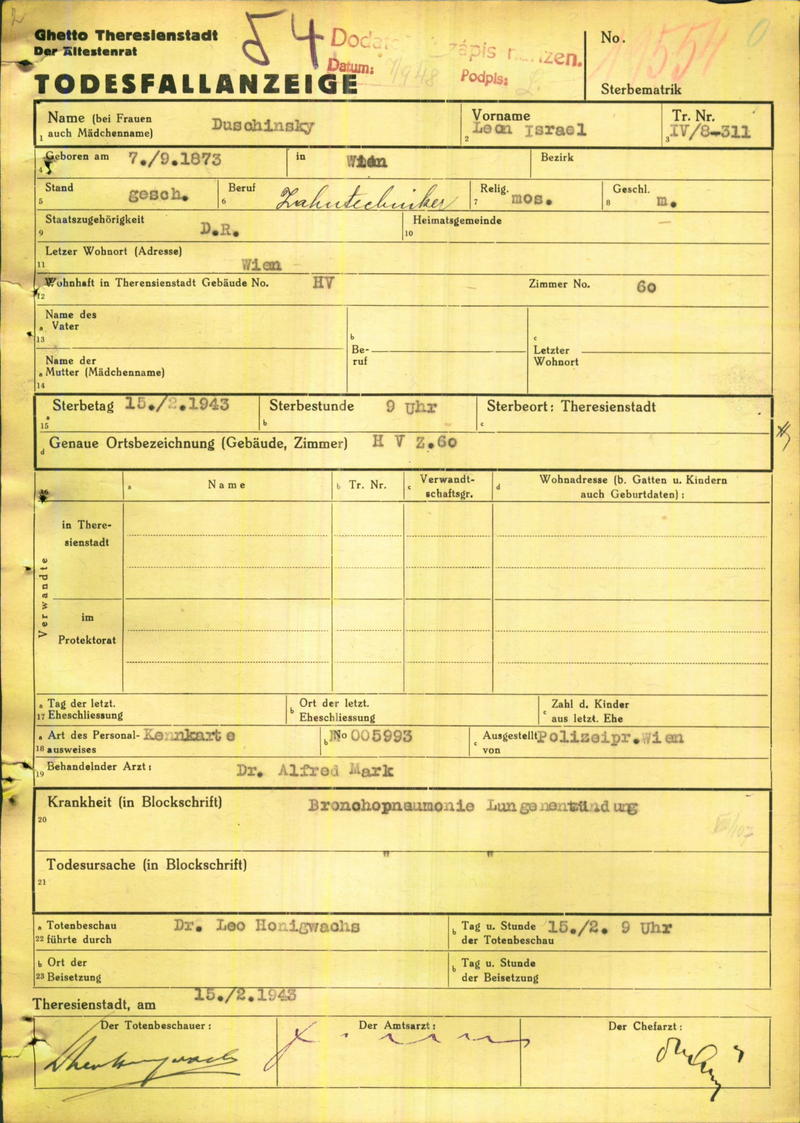 Ghetto Theresienstadt
Der Ältestenrat
TODESFALLANZEIGE
54
Datum: 1948
Podpis:
No.
Sterbematrik
Name (bei Frauen
1 auch Mädchenname)
Duschinsky
Vorname
2 Leon Israel
Tr. Nr.
3 IV/8-311
Geboren am 7./9.1873
4
in Wien
Bezirk
Stand
5 gesch.
Beruf
6 Zahntechniker
Relig.
7 mos.
Geschl.
8 m.
Staatszugehörigkeit
9 D.R.
Heimatsgemeinde
10 —
Letzer Wohnort (Adresse)
11 Wien
Wohnhaft in Therensienstadt Gebäude No. HV
12
Zimmer No. 60
Name des
a Vater
13
b
Be-
ruf
c
Letzter
Wohnort
Name der
a Mutter (Mädchenname)
14
Sterbetag 15./2.1943
a
15
Sterbestunde 9 Uhr
b
Sterbeort: Theresienstadt
c
d Genaue Ortsbezeichnung (Gebäude, Zimmer) H V Z.60
16
a Name
b Tr. Nr.
c Verwandt-
schaftsgr.
d Wohnadresse (b. Gatten u. Kindern
auch Geburtdaten):
Verwandte
in There-
sienstadt
im
Protektorat
a Tag der letzt.
17 Eheschliessung
b Ort der letzt.
Eheschliessung
c Zahl d. Kinder
aus letzt. Ehe
a Art des Personal-
18 ausweises
Kennkarte
b No 005993
c Ausgestellt
von
Polizeipr.Wien
Behandelnder Arzt:
19
Dr. Alfred Mark
Krankheit (in Blockschrift)
20
Bronchopneumonie Lungenentzündung
Todesursache (in Blockschrift)
21
" "
a Totenbeschau
22 führte durch
Dr. Leo Honigwachs
b Tag u. Stunde
der Totenbeschau
15./2. 9 Uhr
b Ort der
23 Beisetzung
b Tag u. Stunde
der Beisetzung
Theresienstadt, am 15./2.1943
Der Totenbeschauer:
Der Amtsarzt:
Der Chefarzt: